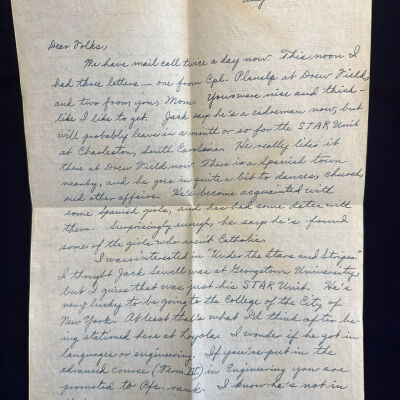 Dear Folks,
We have mail call twice a day now. This noon I
had three letters — one from Cpl. at Drew Field,
and two from you, Mom. Yours were nice and thick —
like I like to get. Jack says he's a cadreman now, but
will probably leave in a month or so for the STAR Unit
at Charleston, South Carolina. He really likes it
there at Drew Field now. There is a Spanish town
nearby, and he goes in quite a bit to dances, church,
and other affairs. He's become acquainted with
some Spanish girls, and has had some dates with
them. Surprisingly enough, he says he's found
some of the girls who aren't Catholic.
I was interested in "Under the Stars and Stripes."
I thought Jack Sewell was at Georgetown University,
but I guess that was just his STAR Unit. He's
very lucky to be going to the College of the City of
New York. At least that's what I'd think after be-
ing stationed here at Loyola. I wonder if he got in
languages or engineering. If you're put in the
advanced course (Term IV) in Engineering you are
promoted to Pfc. rank. I know he's not in